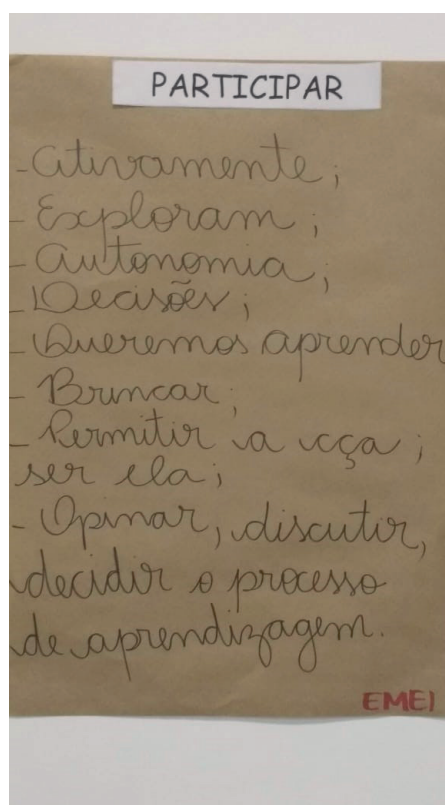 PARTICIPAR
- Ativamente;
- Exploram;
- Autonomia;
- Decisões;
- Queremos aprender
- Brincar;
- Permitir a cça;
ser ela;
- Opinar, discutir,
decidir o processo
de aprendizagem.
EMEI